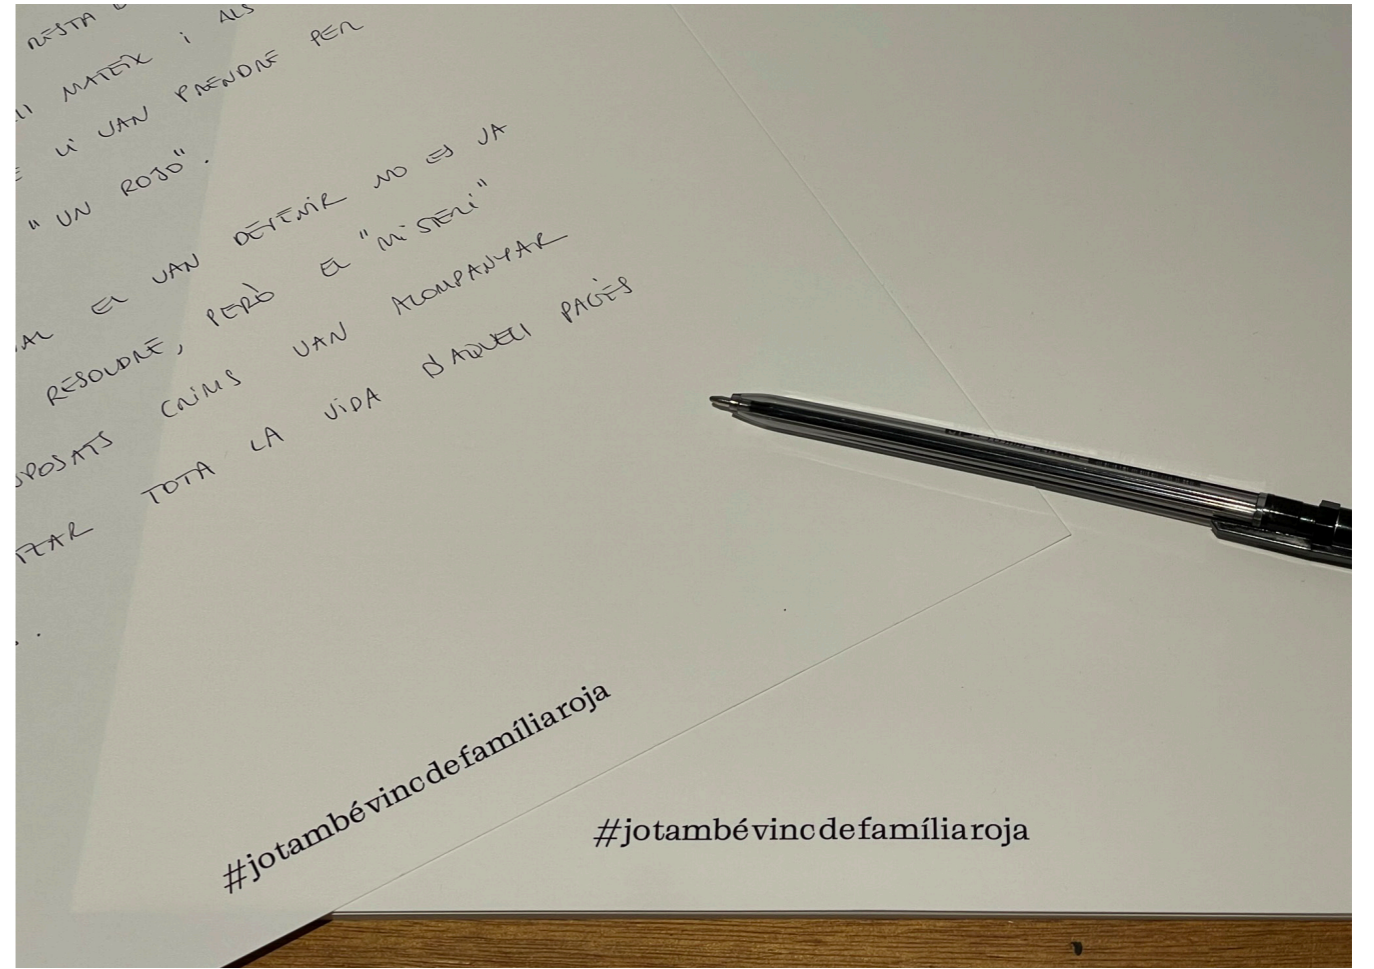 RESTA
MATEIX i ALS
LI VAN PRENDRE PER
"UN ROJO".
EL VAN DETENIR NO ES VA
RESOLDRE, PERÒ EL "MiSTERi"
CRiMS VAN ACOMPANYAR
TOTA LA ViDA D'AQUELL PAGÈS
#jotambévincdefamíliaroja
#jotambévincdefamíliaroja